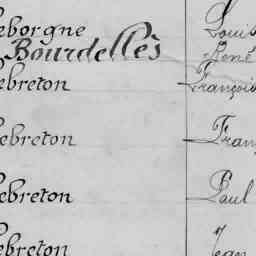 eborgne Louis
Bourdellès René
ebreton François
ebreton Fran
ebreton Paul
ebreton Jean